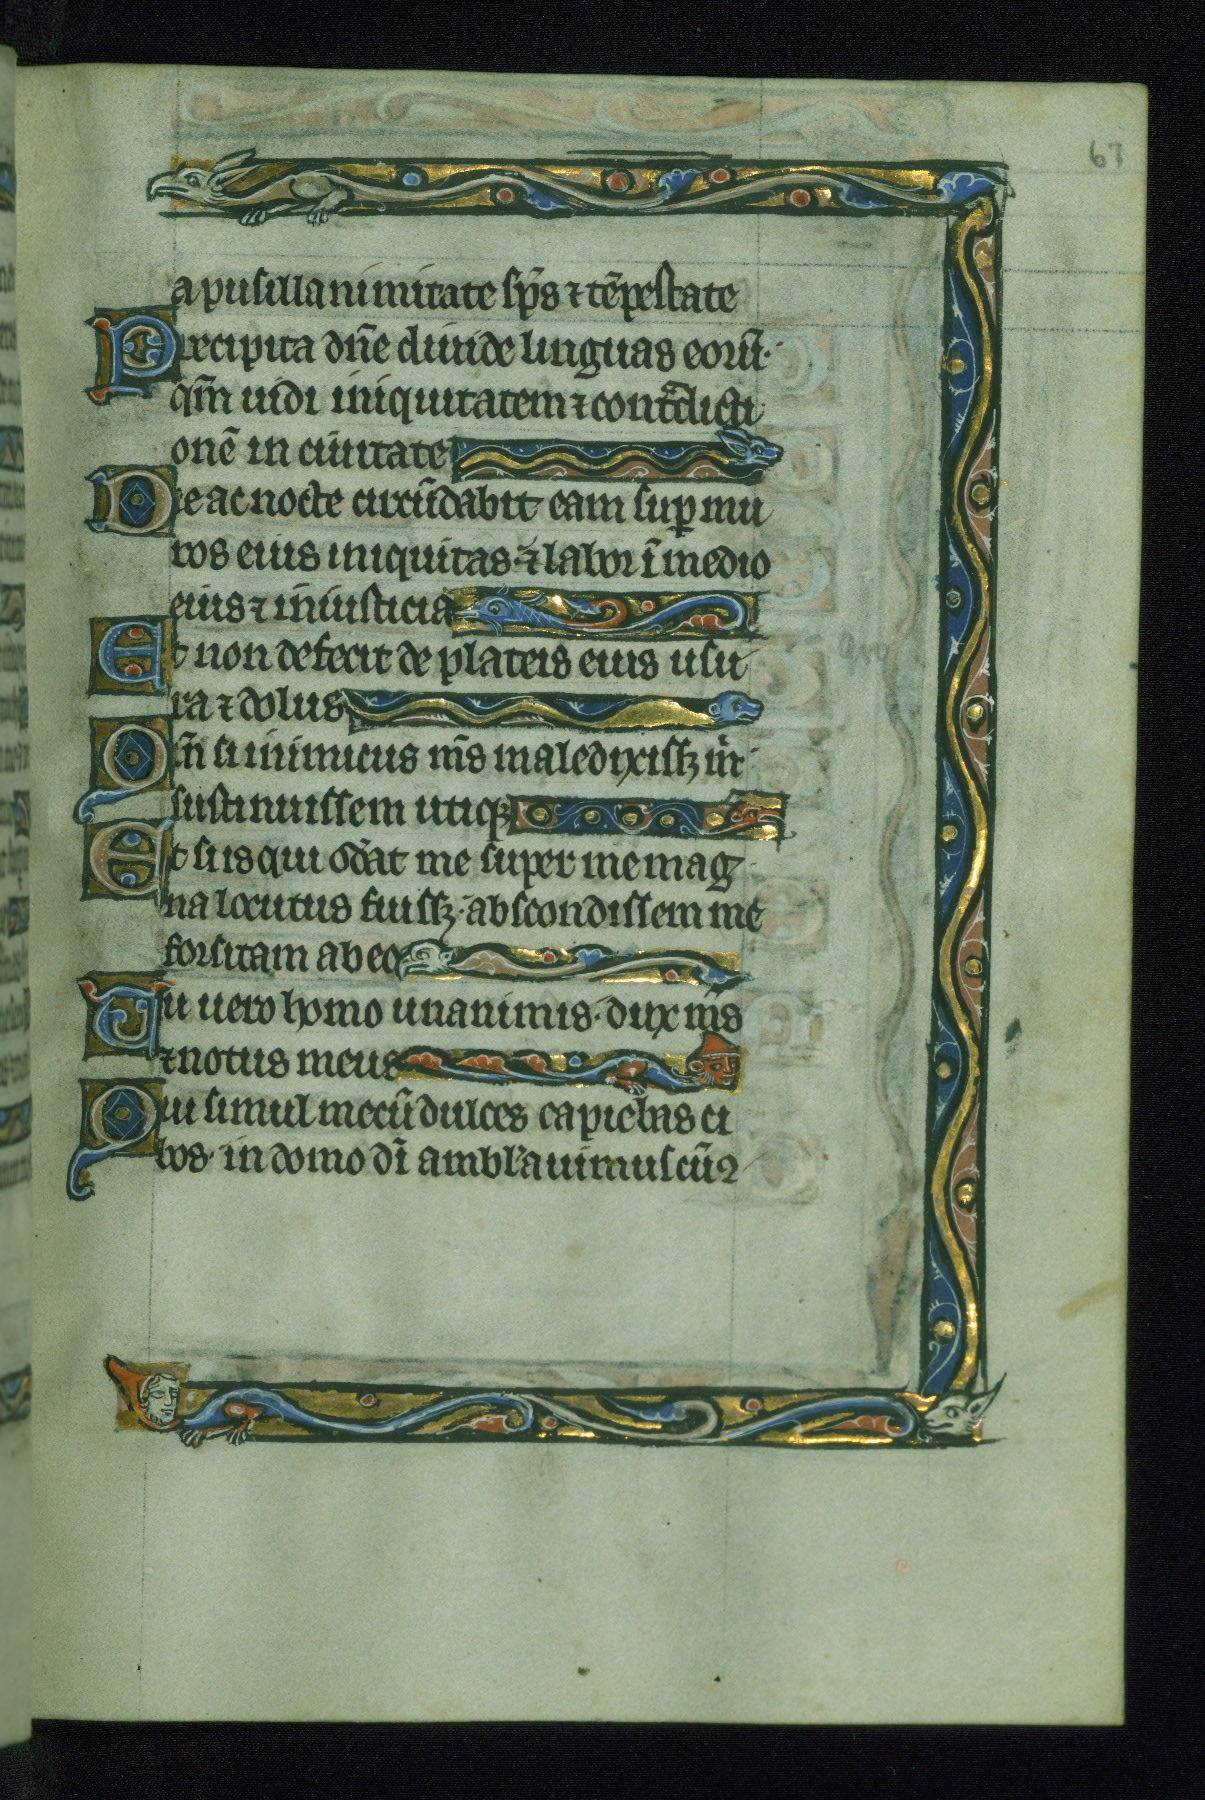 67
a pusillanimitate sp̅s ⁊ te̅pestate
Precipita dn̅e diuide linguas eoru̅·
qm̅ uidi iniquitatem ⁊ contᵃdicti
one̅ in ciuitate
Die ac nocte circu̅dabit eam suꝑ mu
ros eius iniquitas· ⁊ labor i̅ medio
eius ⁊ iniusticia
Et non defecit de plateis eius usu
ra ⁊ dolus
Qm̅ si inimicus m̅s maledixissꝫ m̅
sustinuissem utiqꝫ
Et si is qui od̅at me super me mag
na locutus fuissꝫ· abscondissem me
forsitam ab eo
Tu uero homo unanimis· dux m̅s
⁊ notus meus
Qui simul mecu̅ dulces capiebas ci
bos· in domo di̅ ambl̅auimus cu̅ ꝯ